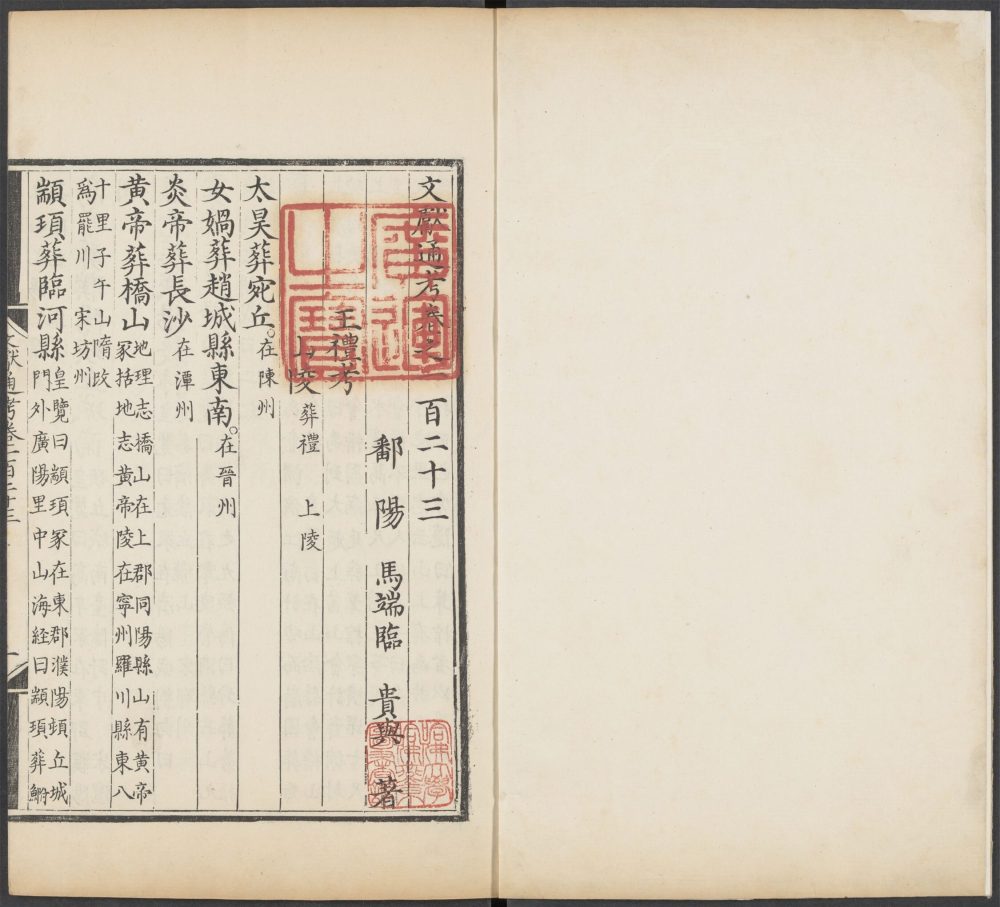 文獻通考卷之一百二十三
鄱陽 馬端臨 貴與 著
王禮考
山陵 葬禮 上陵
太昊葬宛丘。在陳州
女媧葬趙城縣東南。在晉州
炎帝葬長沙 在潭州
黃帝葬橋山 地理志橋山在上郡同陽縣山有黃帝
冢括地志黃帝陵在寧州羅川縣東八
十里子午山隋改
爲羅川 宋坊州
顓頊葬臨河縣 皇覽曰顓頊冢在東郡濮陽頓丘城
門外廣陽里中山海経曰顓頊葬鮒
文獻通考卷一百二十三
廣運之寶
哈佛大學